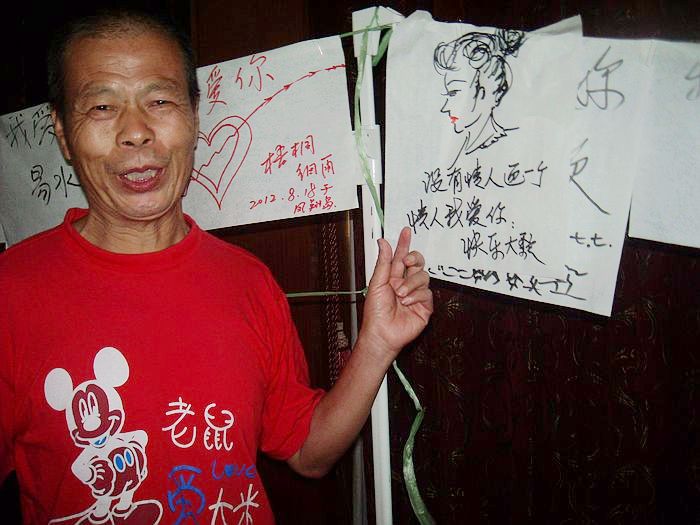 我爱
易水
爱你
梧桐
细雨
2012.8.18于
凤翔岛
没有情人画一个
情人我爱你.
快乐大歌
你
t.t.
老鼠
爱
LOVE
大米